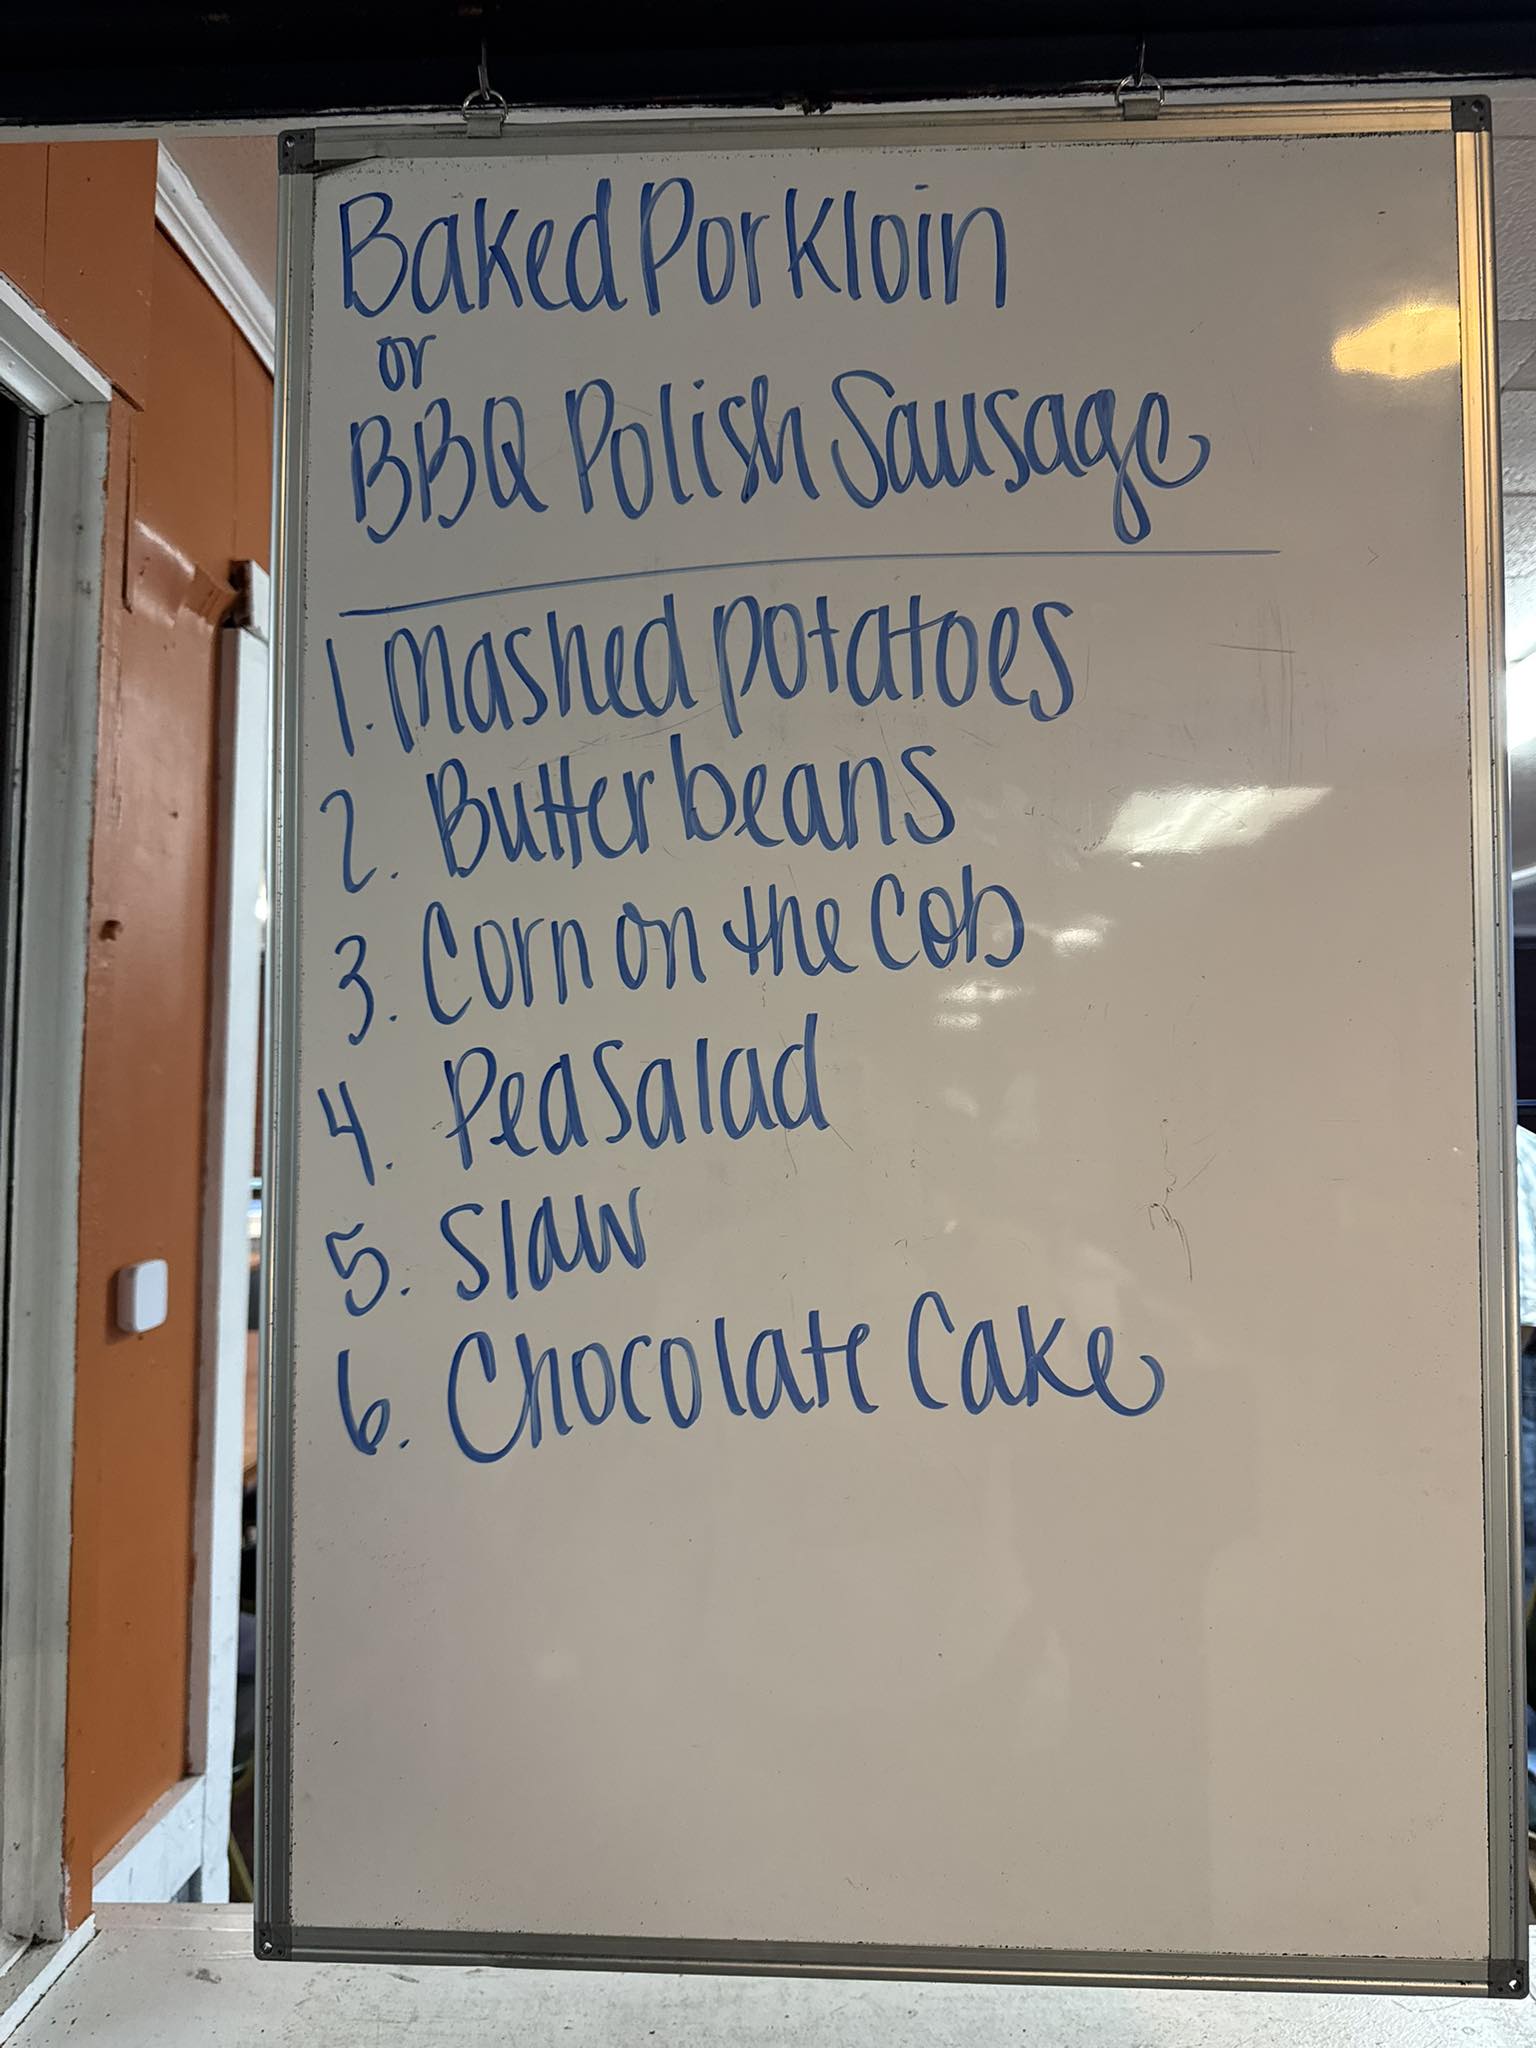 Baked Porkloin
or
BBQ Polish Sausage
1. Mashed potatoes
2. Butterbeans
3. Corn on the Cob
4. Pea Salad
5. Slaw
6. Chocolate Cake